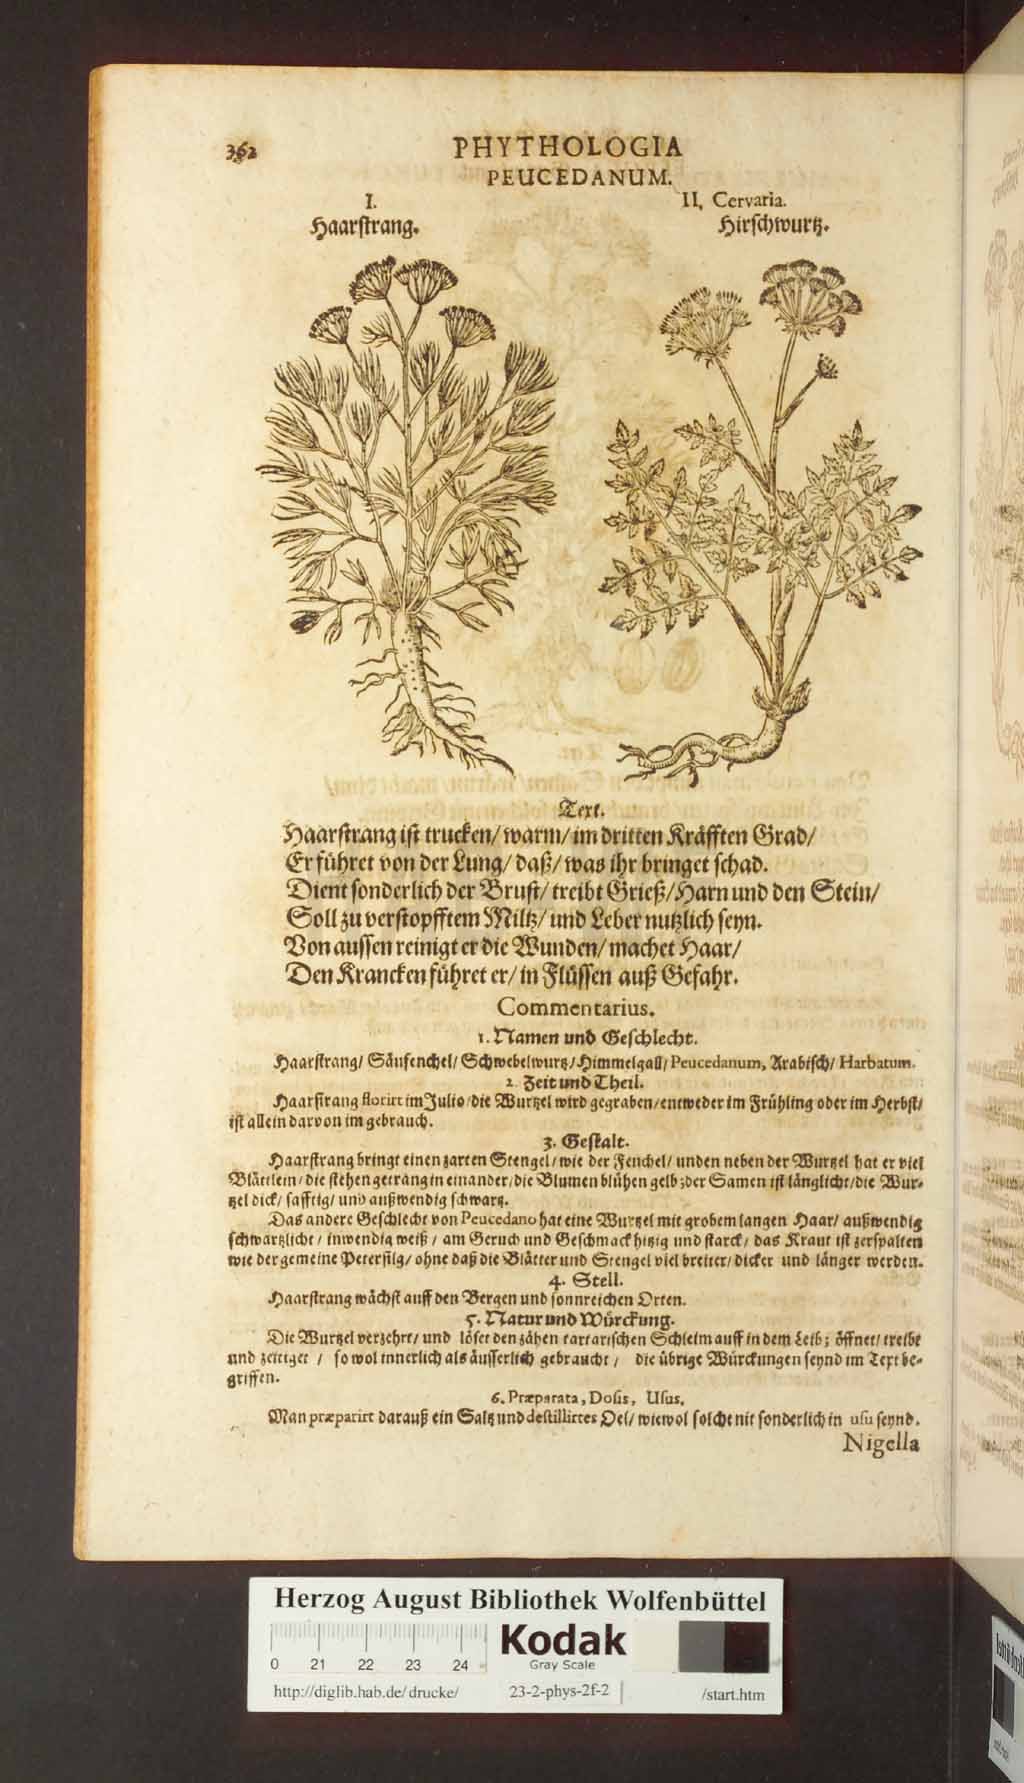 362
PHYTHOLOGIA
PEUCEDANUM.
I.
Haarstrang.
II. Cervaria.
Hirschwurtz.
Text.
Haarstrang ist trucken/ warm/ im dritten Kräfften Grad/
Er führet von der Lung/ daß/ was ihr bringet schad.
Dient sonderlich der Brust/ treibt Grieß/ Harn und den Stein/
Soll zu verstopfftem Miltz/ und Leber nutzlich seyn.
Von aussen reinigt er die Wunden/ machet Haar/
Den Krancken führet er/ in Flüssen auß Gefahr.
Commentarius.
1. Namen und Geschlecht.
Haarstrang/ Säufenchel/ Schwebelwurtz/ Himmelgall/ Peucedanum, Arabisch/ Harbatum.
2. Zeit und Theil.
Haarstrang florirt im Julio/ die Wurtzel wird gegraben/ entweder im Frühling oder im Herbst/
ist allein darvon im gebrauch.
3. Gestalt.
Haarstrang bringt einen zarten Stengel/ wie der Fenchel/ unden neben der Wurtzel hat er viel
Blättlein/ die stehen getrang in einander/ die Blumen blühen gelb; der Samen ist länglicht/ die Wur-
tzel dick/ safftig/ und außwendig schwartz.
Das andere Geschlecht von Peucedano hat eine Wurtzel mit grobem langen Haar/ außwendig
schwartzlicht/ inwendig weiß/ am Geruch und Geschmack hitzig und starck/ das Kraut ist zerspalten
wie der gemeine Petersilg/ ohne daß die Blätter und Stengel viel breiter/ dicker und länger werden.
4. Stell.
Haarstrang wächst auff den Bergen und sonnreichen Orten.
5. Natur und Würckung.
Die Wurtzel verzehrt/ und löset den zähen tartarischen Schleim auff in dem Leib; öffnet/ treibt
und zeitiget/ so wol innerlich als äusserlich gebraucht/ die übrige Würckungen seynd im Text be-
griffen.
6. Præparata, Dosis, Usus.
Man præparirt darauß ein Saltz und destillirtes Oel/ wiewol solche nit sonderlich in usu seynd.
Nigella
Herzog August Bibliothek Wolfenbüttel
0 21 22 23 24
Kodak
Gray Scale
http://diglib.hab.de/drucke/ 23-2-phys-2f-2 /start.htm